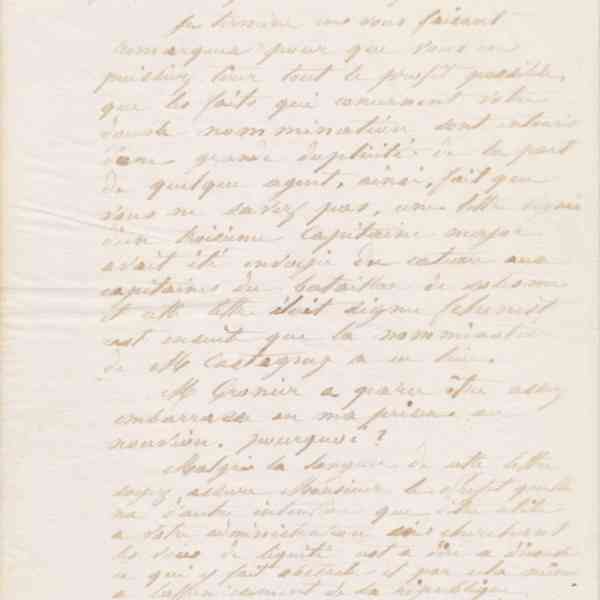 Je termine en vous faisant
remarquer pour que vous en
puissiez tirer tout le profit possible,
que les faits qui concernent votre
nommination sont entourés
d'une grande duplicité de la part
de quelque agent, ainsi, fait que
vous ne savez pas, une lettre signée
d'un troisieme capitaine major
avait été envoyée du cateau aux
capitaines du bataillon de solesme
et cette lettre étoit signée
est ensuit que la nommination
de Mr Castegnez a eu lieu.
Mr Gronier a parru être assez
embarrassé en ma présence au
nouvion. pourquoi ?
Malgré la longueur de cette lettre
soyez assuré Monsieur le préfet quelle
na d'autre intention que d'être utile
a votre administration en cherchant
de l'équité cest a dire a
ce qui y fait obstacle et par cela même
a de la république